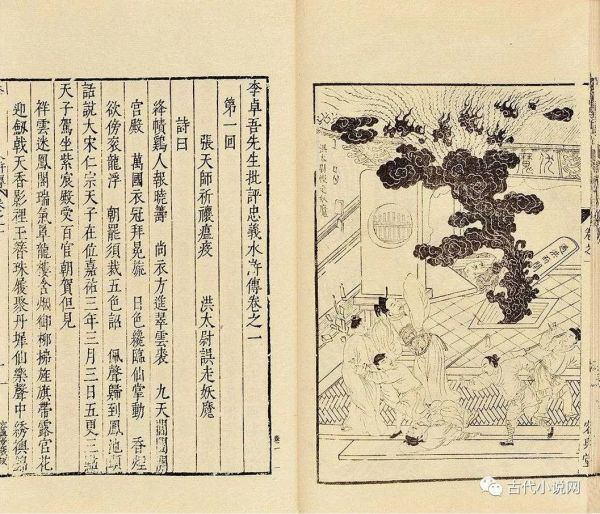 洪太尉誤走妖魔
遇洪而開
容與堂
李卓吾先生批評忠義水滸傳卷之一
第一回
張天師祈禳瘟疫 洪太尉誤走妖魔
詩曰
絳幘鷄人報曉籌 尚衣方進翠雲裘 九天閶闔開
宮殿 萬國衣冠拜冕旒 日色纔臨仙掌動 香煙
欲傍袞龍浮 朝罷須裁五色詔 佩聲歸到鳳池頭
話說大宋仁宗天子在位嘉祐三年三月三日五更三點
天子駕坐紫宸殿受百官朝賀但見
祥雲迷鳳閣瑞氣罩龍樓含烟御柳拂旌旗帶露宮花
迎劍戟天香影裡玉簪珠履聚丹墀仙樂聲中綉襖錦
古代小说网